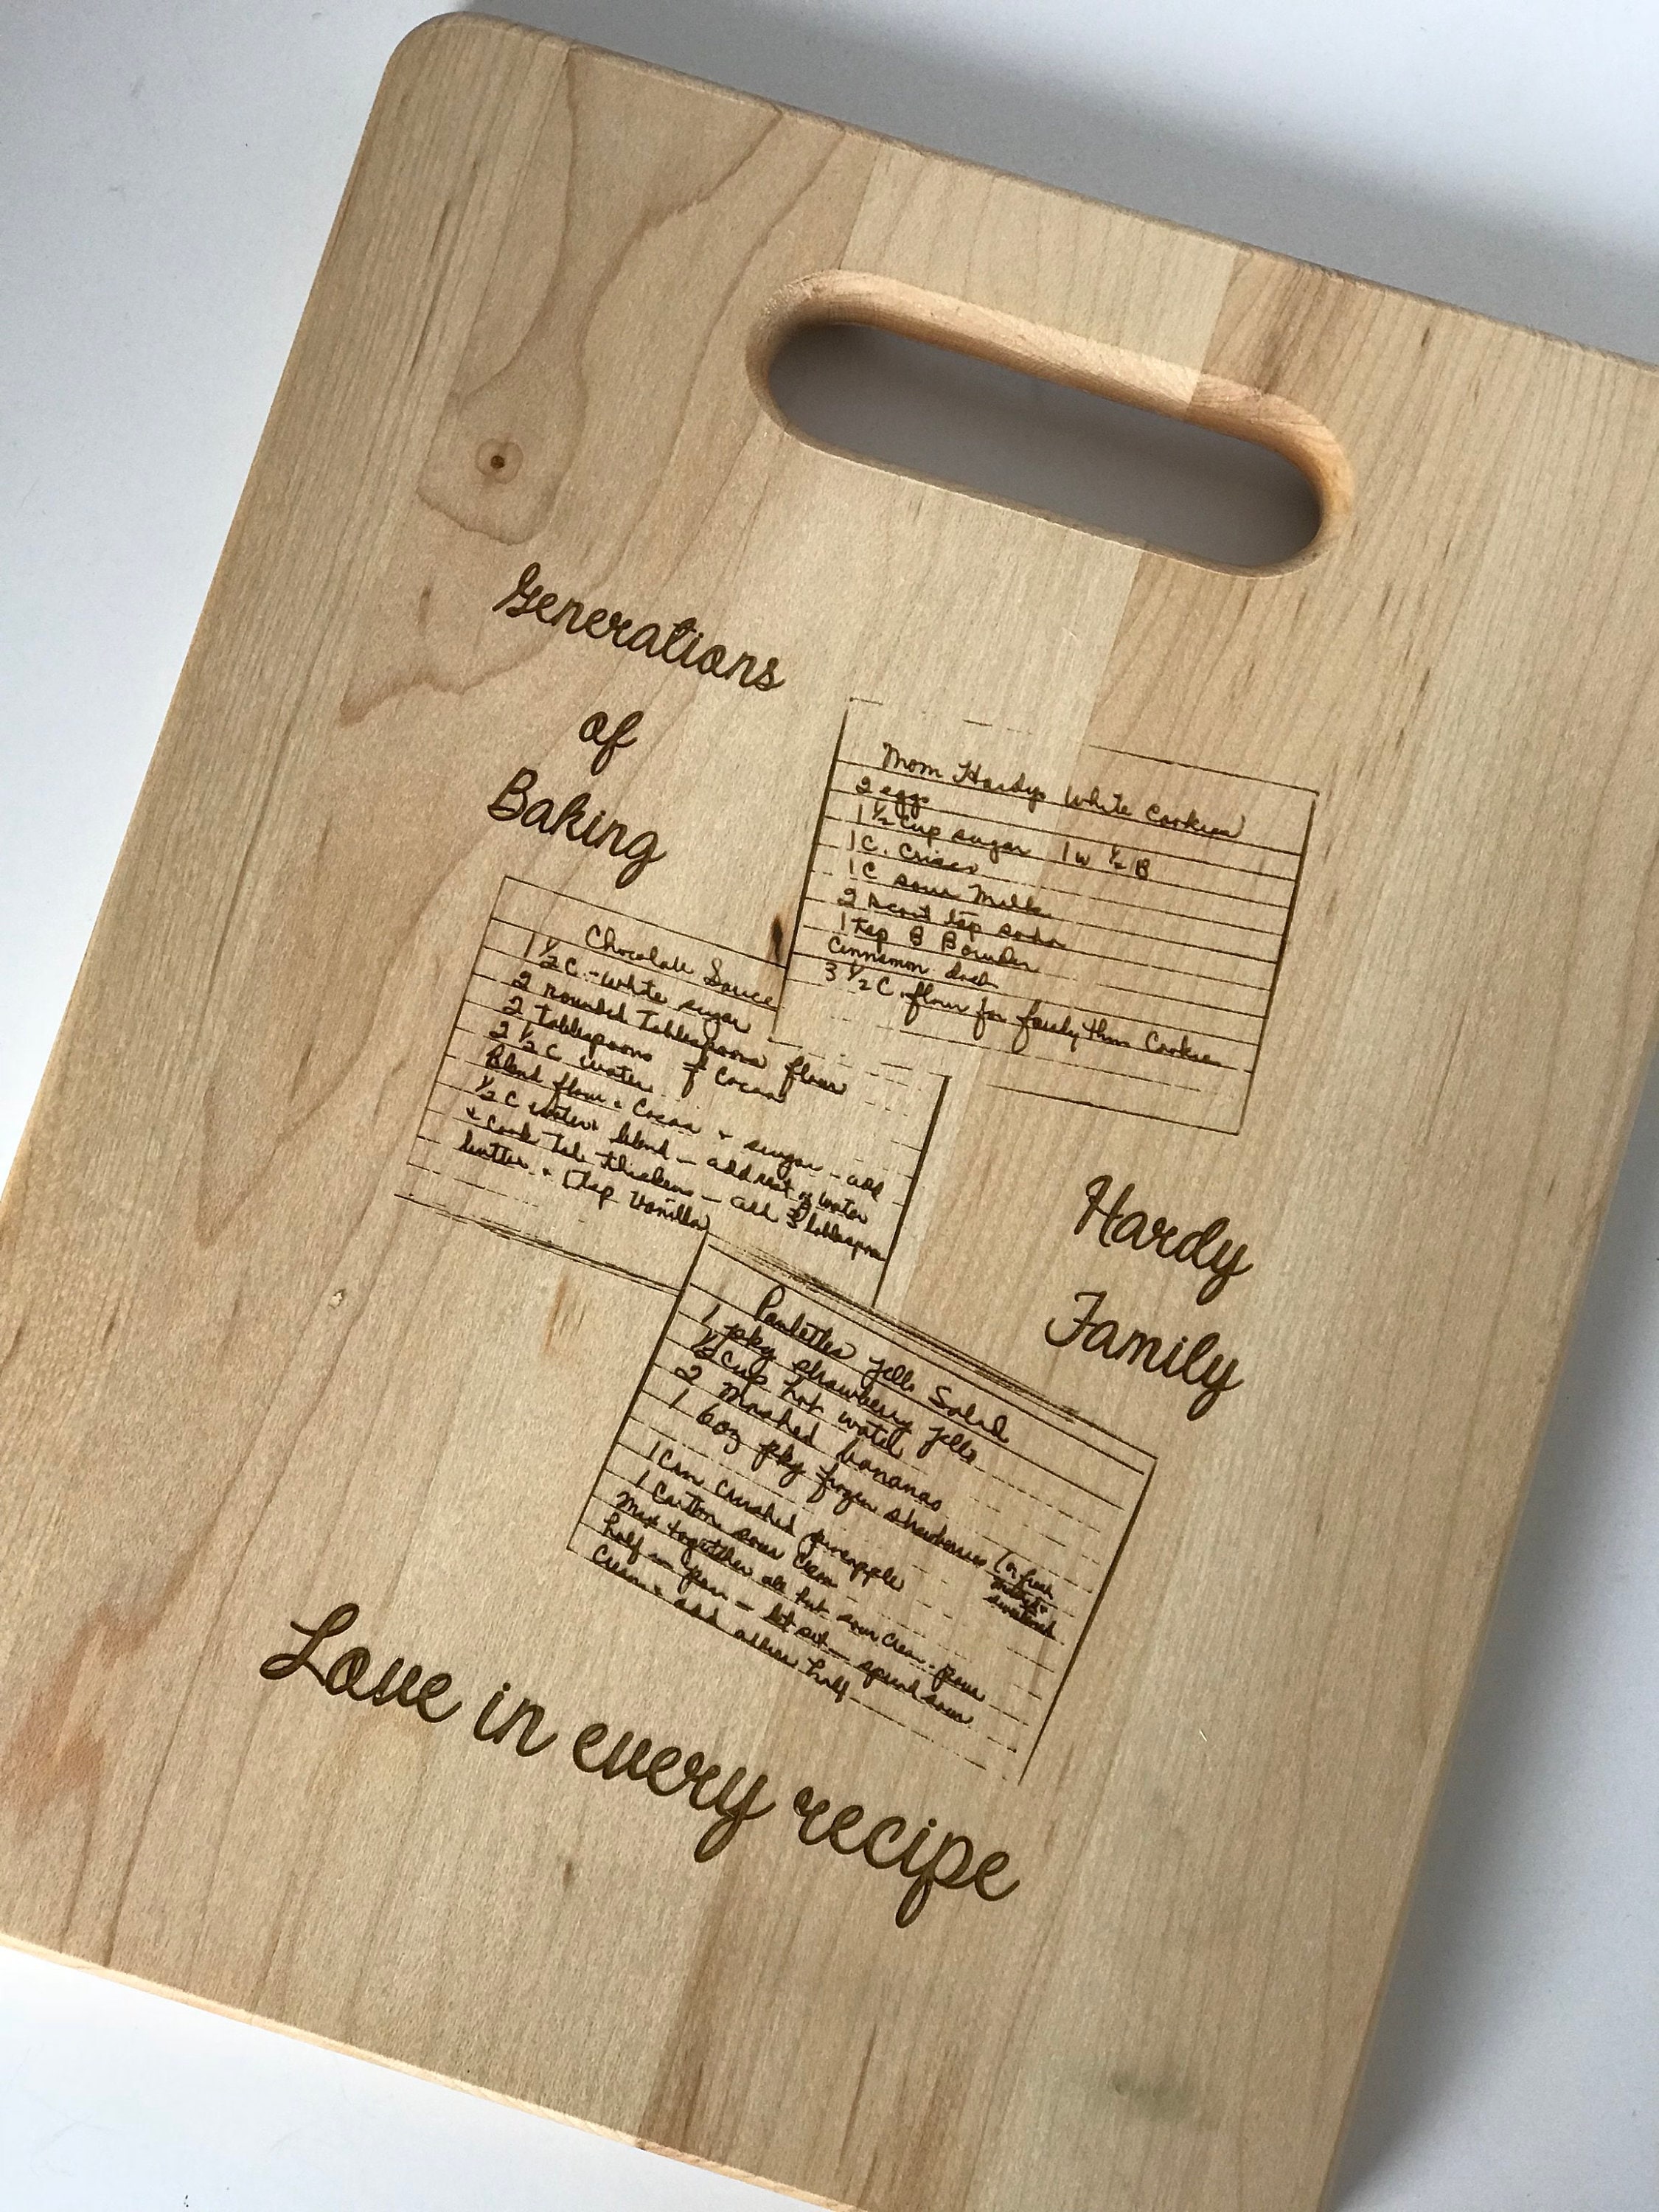 Generations
of
Baking
Mom Hardys White Cookies
2 eggs
1 1/2 Cup sugar 1 w 1/2 B
1 C. Crisco
1 C sour Milk
2 scant tsp soda
1 tsp B Powder
Cinnamon dash
3 1/2 C flour for fairly thin Cookies
Chocolate Sauce
1 1/2 C. - White sugar
2 rounded Tablespoons flour
2 tablespoons of Cocoa
2 1/2 C water
Blend flour & Cocoa & sugar - add
1/2 C water blend - add rest of water
& Cook til thickens - add 3 tablespoon
butter & 1 tsp Vanilla
Hardy
Family
Paulettes Jello Salad
1 pkg strawberry jello
1/2 Cup hot water
2 Mashed bananas
1 6oz pkg frozen strawberries (or fresh
sweetened
1 Can Crushed pineapple
1 Carton sour Cream
Mix together all but sour cream - pour
half in pan - let set - spread sour
Cream & add other half
Love in every recipe